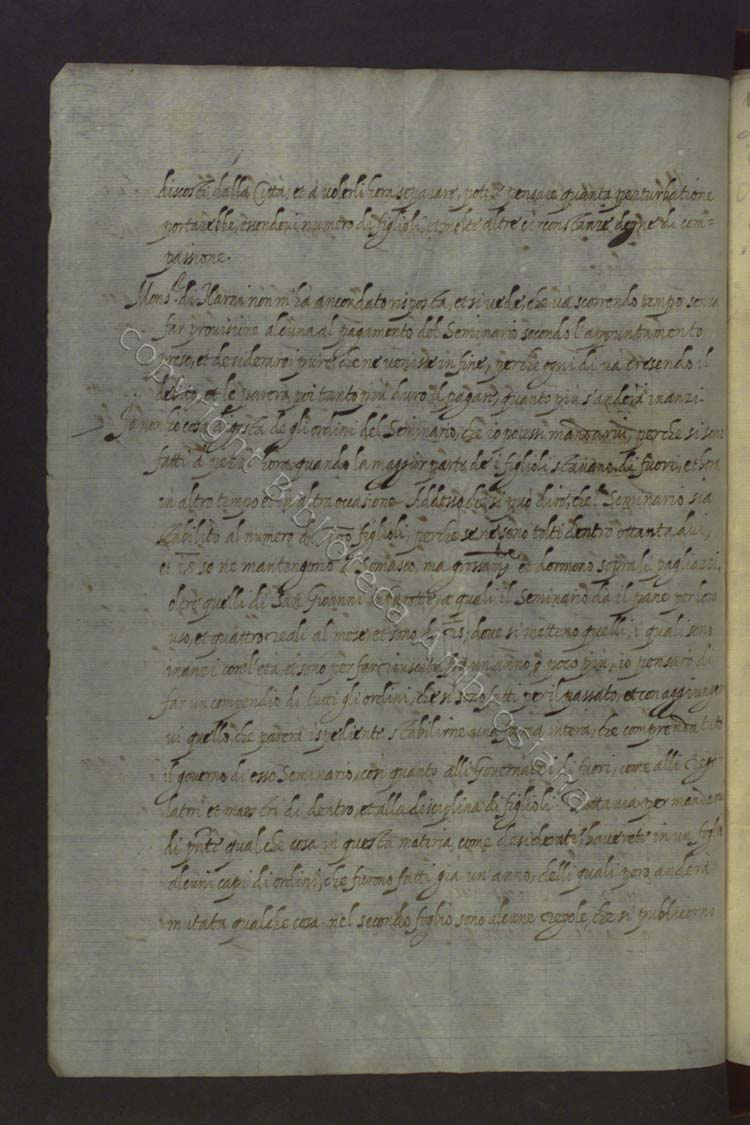 discosti dalla Città, et à volerli hora separare, potete pensare quanta perturbatione
portarebbe, essendovi numero di figlioli, et molte altre circonstanze degne di com-
passione.
Mons.r di Narni non m'ha ancor dato risposta, et si vede, che và scorrendo tempo senza
far provisione alcuna al pagamento del Seminario secondo l'appuntamento
preso, et desiderarei pure che ne veniste in fine, perche ogni di và cresendo il
debito, et le parerà poi tanto più duro il pagare, quanto più s'anderà inanzi
Io non ho cosa à posta de gli ordini del Seminario, che io potessi mandarvi, perche si sono
fatti à pezzi hora quando la maggior parte de i figlioli stavano di fuori, et hora
in altro tempo et in altra occasione. Adesso che si puo dire, che l Seminario sia
stabilito al numero di figlioli, perche se ne sono tolti dentro ottanta qui,
et 25 se ne mantengono à Somasco, ma et dormono sopra li pagliazzi,
oltre quelli di San Giovanni in Burotte, a quali il Seminario dà il pane per loro
uso, et quattro reali al mese, et sono n.o 25, dove si metteno quelli, i quali sono
inanzi con l'età, et sono per far riuscita frà un anno, ò poco più, io pensarò di
far un compendio di tutti gli ordini, che si sono fatti per il passato, et con aggiunger
vi quello, che parerà ispediente stabilirne una forma intera, che comprenda tutto
il governo di esso Seminario, cosi quanto alli Governatori di fuori, come alli Reg-
latori et maestri di dentro, et alla disciplina di figlioli. Tuttavia per mandarvi
di pnte qualche cosa in questa materia, come desiderate, haverete in un foglio
alcuni capi di ordini, che furono fatti già un anno, delli quali però anderà
mutata qualche cosa. nel secondo foglio sono alcune regole, che si publicorno
copyright Biblioteca Ambrosiana